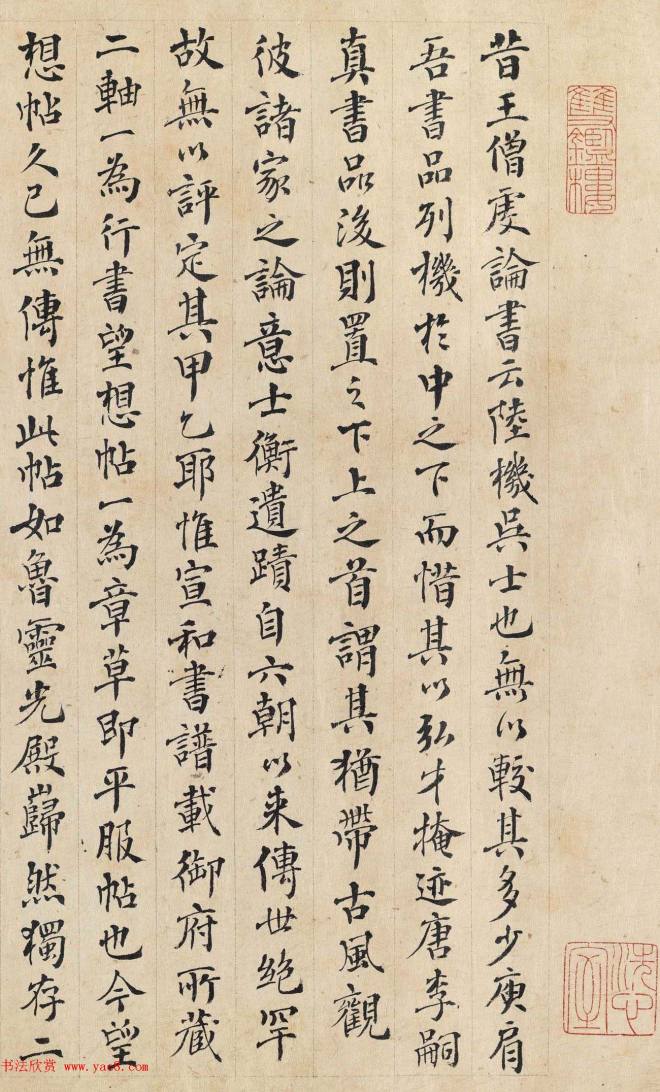 昔王僧虔論書云陸機吳士也無以較其多少庾肩
吾書品列機於中之下而惜其以弘才掩迹唐李嗣
真書品後則置之下上之首謂其猶帶古風觀
彼諸家之論意士衡遺蹟自六朝以來傳世絕罕
故無以評定其甲乙耶惟宣和書譜載御府所藏
二軸一為行書望想帖一為章草即平服帖也今望
想帖久已無傳惟此帖如魯靈光殿巋然獨存二
雙鑑樓
洗心室
书法欣赏 www.yac8.com